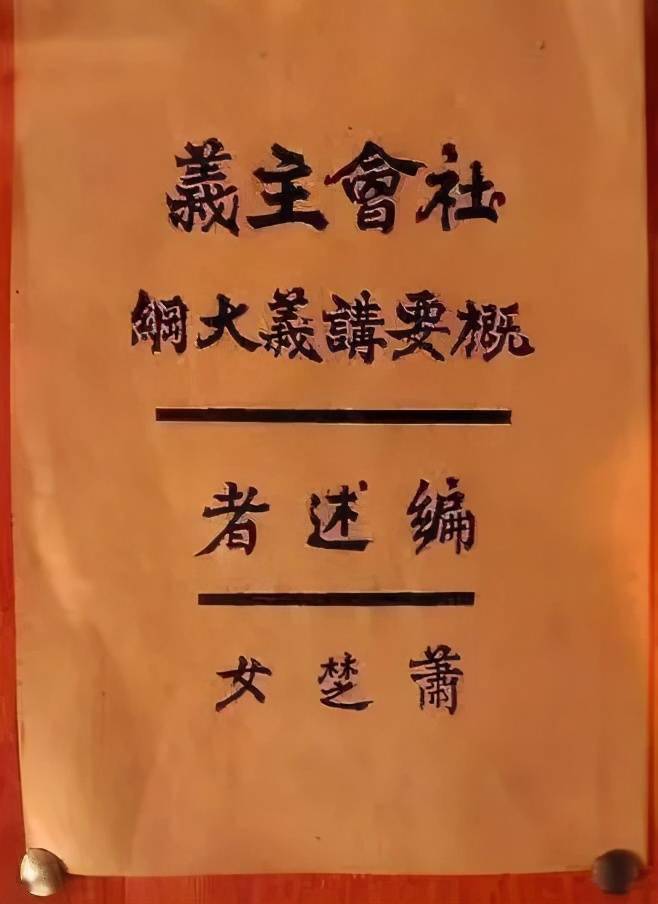 社會主義
概要講義大綱
編述者
蕭楚女